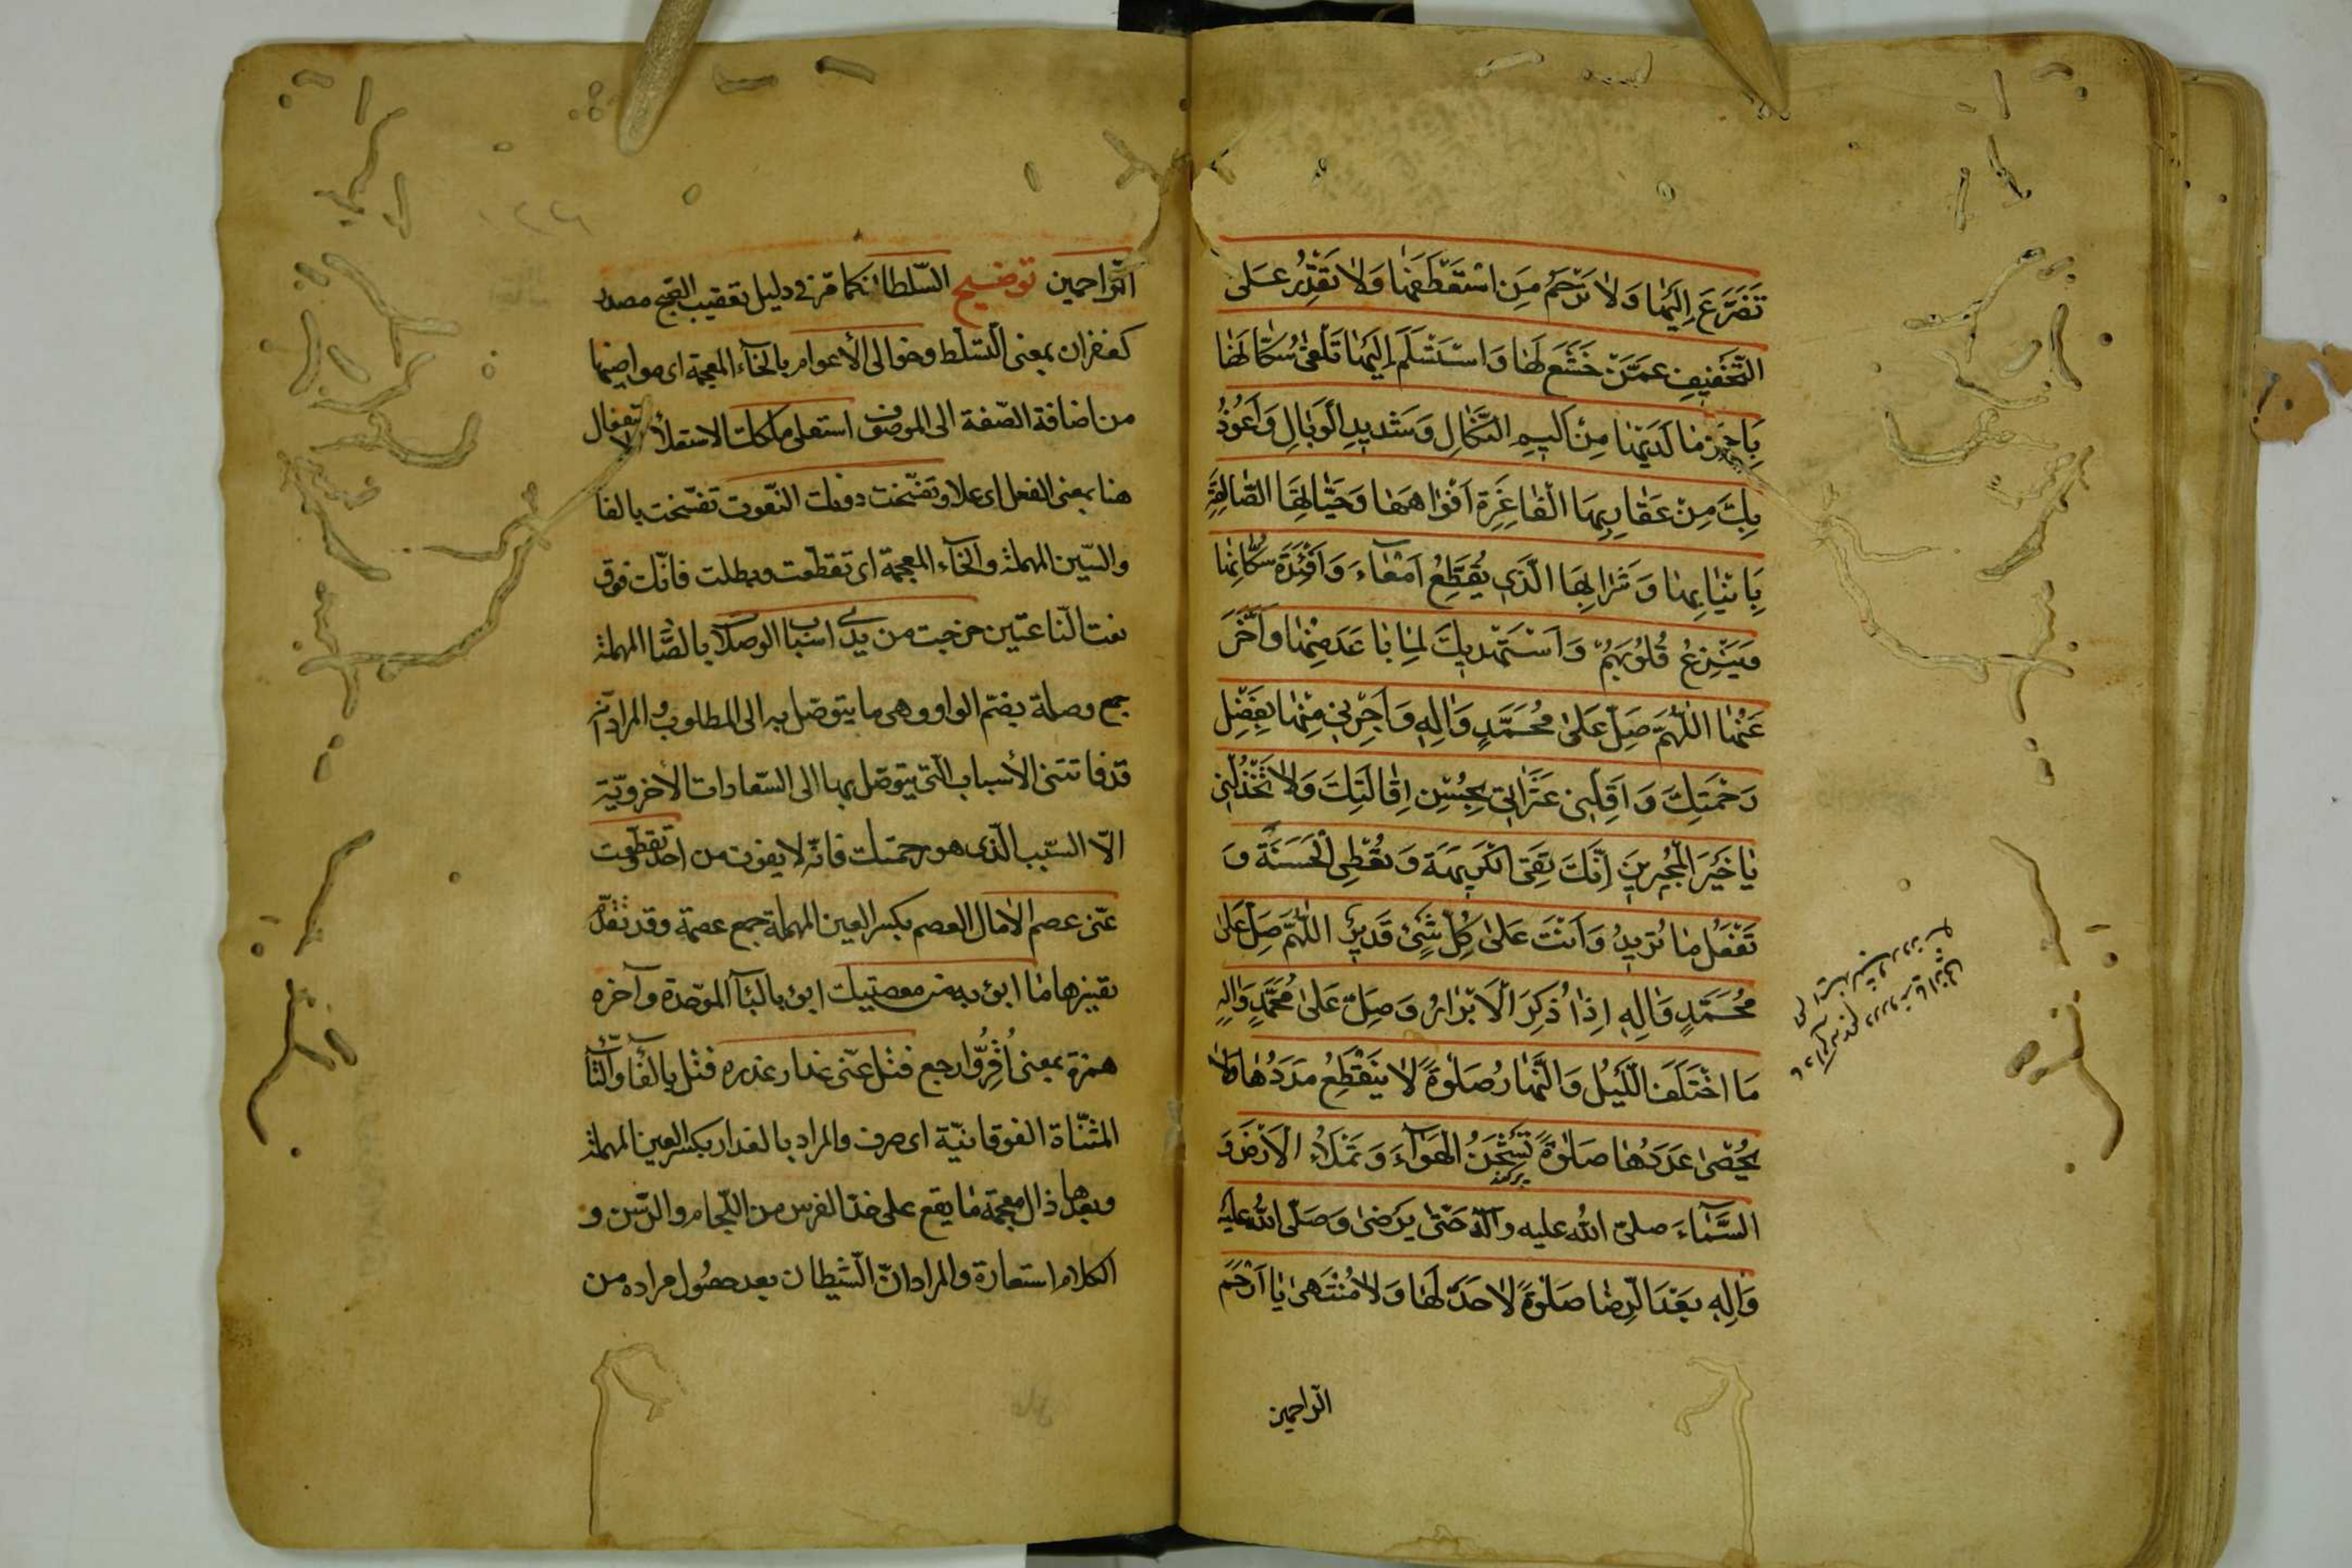 تَضَرَّعَ اِلَیْهٰا وَلاٰ تَرْحَمُ مَنِ اسْتَعْطَفَهٰا وَلاٰ تَقْدِرُ عَلَی
التَّخْفیفِ عَمَّنْ خَشَعَ لَهٰا وَاسْتَسْلَمَ اِلَیْهٰا تَلْقیٰ سُکّٰانَهٰا
بِاَحَرِّ مٰا لَدَیْهٰا مِنْ اَلیمِ النَّکٰالِ وَشَدیدِ الْوَبٰالِ وَاَعُوذُ
بِكَ مِنْ عَقٰارِبِهَا الْفٰاغِرَةِ اَفْوٰاهُهٰا وَحَیّٰاتِهَا الصّٰالِقَةِ
بِاَنْیٰابِهٰا وَشَرٰابِهَا الَّذی یُقَطِّعُ اَمْعٰآءَ وَاَفْئِدَةَ سُکّٰانِهٰا
وَیَنْزِعُ قُلُوبَهُمْ وَاَسْتَهْدیكَ لِمٰا بٰاعَدَ مِنْهٰا وَاَخَّرَ
عَنْهٰا اَللّٰهُمَّ صَلِّ عَلیٰ مُحَمَّدٍ وَاٰلِهِ وَاَجِرْنی مِنْهٰا بِفَضْلِ
رَحْمَتِكَ وَاَقِلْنی عَثَرٰاتی بِحُسْنِ اِقٰالَتِكَ وَلاٰ تَخْذُلْنی
یٰا خَیْرَ الْمُجیرینَ اِنَّكَ تَقِی الْکَریهَةَ وَتُعْطِی الْحَسَنَةَ وَ
تَفْعَلُ مٰا تُریدُ وَاَنْتَ عَلیٰ کُلِّ شَیْءٍ قَدیرٌ اَللّٰهُمَّ صَلِّ عَلیٰ
مُحَمَّدٍ وَاٰلِهِ اِذٰا ذُکِرَ الْاَبْرٰارُ وَصَلِّ عَلیٰ مُحَمَّدٍ وَاٰلِهِ
مَا اخْتَلَفَ اللَّیْلُ وَالنَّهٰارُ صَلٰوةً لاٰ یَنْقَطِعُ مَدَدُهٰا وَلاٰ
یُحْصیٰ عَدَدُهٰا صَلٰوةً تَشْحَنُ الْهَوٰآءَ وَتَمْلَاُ الْاَرْضَ وَ
السَّمٰآءَ صلّی الله علیه وآله حَتّیٰ یَرْضیٰ وَصَلَّی اللهُ عَلَیْهِ
وَاٰلِهِ بَعْدَ الرِّضٰا صَلٰوةً لاٰ حَدَّ لَهٰا وَلاٰ مُنْتَهیٰ یٰا اَرْحَمَ
الرّاحمین
الرّاحمین توضیح السّلطان کما مرّ فی دلیل تعقیب الصّبح مصدر
کغفران بمعنی التّسلّط وخوالی الأعوام بالخآء المعجمة ای مواضیها
من اضافة الصّفة الی الموصوف استعلی ملکك الاستعلاء الاستفعال
هنا بمعنی الفعل ای علا وتفسّخت دونك النّعوت تفسّخت بالفا
والسّین المهملة والخآء المعجمة ای تقطّعت وبطلت فانّك فوق
نعت النّاعتین خرجت من یدی اسباب الوصلات بالصّاد المهملة
جمع وصلة بضمّ الواو وهی ما یتوصّل به الی المطلوب والمراد انّه
قد فاتتنی الأسباب الّتی یتوصّل بها الی السّعادات الأخرویّة
الّا السّبب الّذی هو رحمتك فانّه لا یفوت من احد وتقطّعت
عنّی عصم الاٰمال العصم بکسر العین المهملة جمع عصمة وقد تقدّم
تفسیرها ما ابوء به من معصیتك ابوء بالبآء الموحّدة وآخره
همزة بمعنی اُقرّ وارجع فتل عنّی عذار غدره فتل بالفآء والتّآء
المثنّاة الفوقانیّة ای صرف والمراد بالعذار بکسر العین المهملة
وبعدها ذال معجمة ما یقع علی خدّ الفرس من اللّجام والرّسن و
الکلام استعارة والمراد انّ الشّیطان بعد حصول مراده من